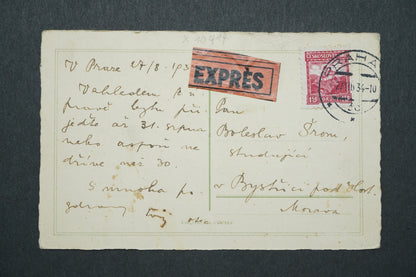 V Praze 27/8 - 193
Vzhledem k ú-
pravě bytu při-
jeďte až 31. srpna
nebo aspoň ne
dříve než 30.
S mnoha po-
zdravy
EXPRÈS
ČESKOSLOVENSKO
PRAHA
34-10
Pan
Boleslav Šrom,
studující
v Bystřici pod Host.
Morava